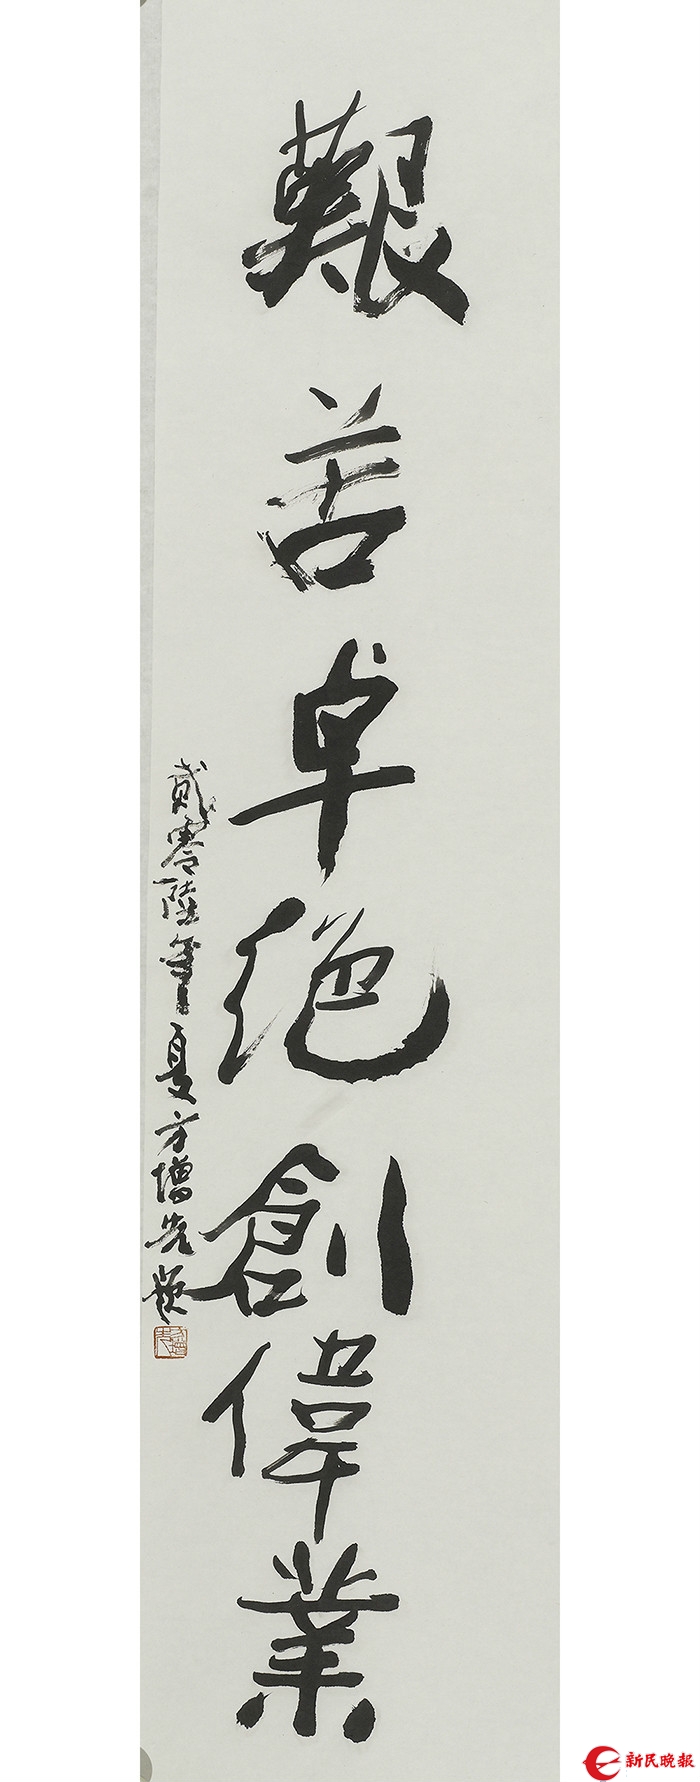 艱苦卓绝創偉業
貳零陸年夏方增先题
新民晚報